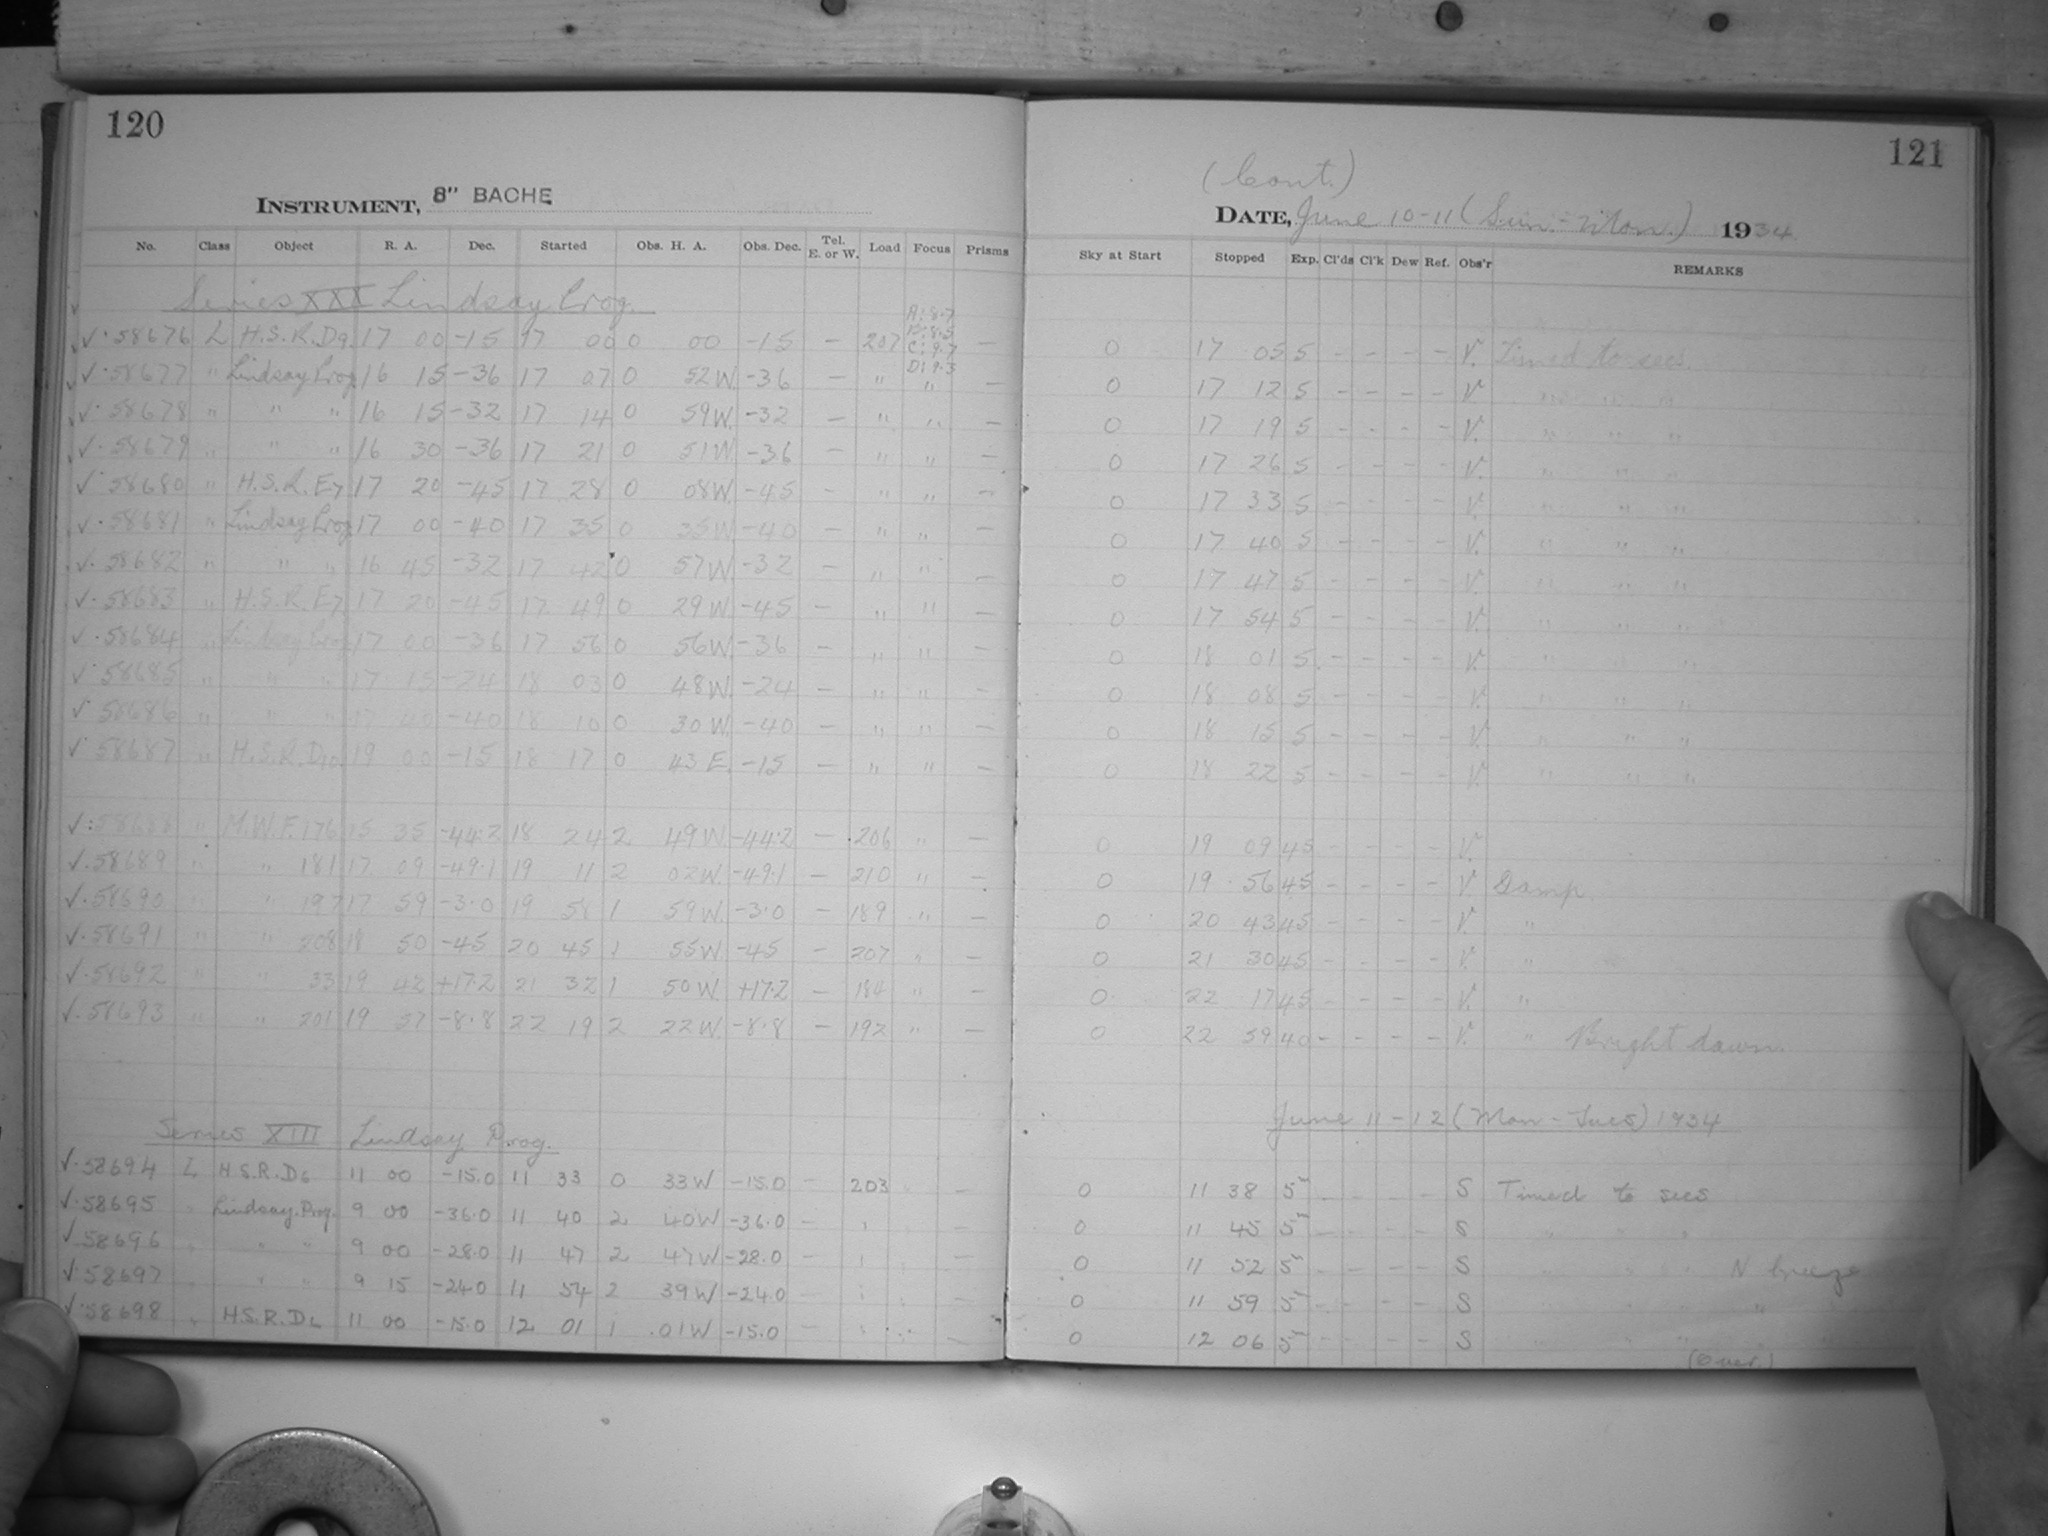 120
INSTRUMENT, 8" BACHE
No. Class Object R. A. Dec. Started Obs. H. A. Obs. Dec. Tel. E. or W. Load Focus Prisms
Series XXI Lindsay Prog.
A: 8.7
B: 8.5
C: 9.7
D: 9.3
✓ 58676 L H.S.R. D9. 17 00 -15 17 00 0 00 -15 – 207 –
✓ 58677 " Lindsay Prog. 16 15 -36 17 07 0 52 W. -36 – " " –
✓ 58678 " " " 16 15 -32 17 14 0 59 W. -32 – " " –
✓ 58679 " " " 16 30 -36 17 21 0 51 W. -36 – " " –
✓ 58680 " H.S.R. E7 17 20 -45 17 28 0 08 W. -45 – " " –
✓ 58681 " Lindsay Prog. 17 00 -40 17 35 0 35 W. -40 – " " –
✓ 58682 " " " 16 45 -32 17 42 0 57 W. -32 – " " –
✓ 58683 " H.S.R. E7 17 20 -45 17 49 0 29 W. -45 – " " –
✓ 58684 " Lindsay Prog. 17 00 -36 17 56 0 56 W. -36 – " " –
✓ 58685 " " " 17 15 -24 18 03 0 48 W. -24 – " " –
✓ 58686 " " " 17 40 -40 18 10 0 30 W. -40 – " " –
✓ 58687 " H.S.R. D10. 19 00 -15 18 17 0 43 E. -15 – " " –
✓ 58688 " M.W.F. 176 15 35 -44.2 18 24 2 49 W. -44.2 – 206 " –
✓ 58689 " " 181 17 09 -49.1 19 11 2 02 W. -49.1 – 210 " –
✓ 58690 " " 197 17 59 -3.0 19 58 1 59 W. -3.0 – 189 " –
✓ 58691 " " 208 18 50 -45 20 45 1 55 W. -45 – 207 " –
✓ 58692 " " 33 19 42 +17.2 21 32 1 50 W. +17.2 – 184 " –
✓ 58693 " " 201 19 57 -8.8 22 19 2 22 W. -8.8 – 192 " –
Series XIII Lindsay Prog.
✓ 58694 L H.S.R. D6 11 00 -15.0 11 33 0 33 W -15.0 – 203 –
✓ 58695 " Lindsay. Prog. 9 00 -36.0 11 40 2 40 W -36.0 – " –
✓ 58696 " " " 9 00 -28.0 11 47 2 47 W -28.0 – " –
✓ 58697 " " " 9 15 -24.0 11 54 2 39 W -24.0 – " –
✓ 58698 " H.S.R. D6 11 00 -15.0 12 01 1 01 W -15.0 – " –
121
(Cont.)
DATE, June 10-11 (Sun.-Mon.) 1934
Sky at Start Stopped Exp. Cl'ds Cl'k Dew Ref. Obs'r REMARKS
0 17 05 5 – – – – V. Timed to secs.
0 17 12 5 – – – – V. " " "
0 17 19 5 – – – – V. " " "
0 17 26 5 – – – – V. " " "
0 17 33 5 – – – – V. " " "
0 17 40 5 – – – – V. " " "
0 17 47 5 – – – – V. " " "
0 17 54 5 – – – – V. " " "
0 18 01 5 – – – – V. " " "
0 18 08 5 – – – – V. " " "
0 18 15 5 – – – – V. " " "
0 18 22 5 – – – – V. " " "
0 19 09 45 – – – – V.
0 19 56 45 – – – – V. Damp.
0 20 43 45 – – – – V. "
0 21 30 45 – – – – V. "
0 22 17 45 – – – – V. "
0 22 59 40 – – – – V. " Bright dawn.
June 11-12 (Mon-Tues) 1934
0 11 38 5 – – – – S Timed to secs
0 11 45 5 – – – – S " " "
0 11 52 5 – – – – S " " " N breeze
0 11 59 5 – – – – S " " " "
0 12 06 5 – – – – S " " "
(Over.)